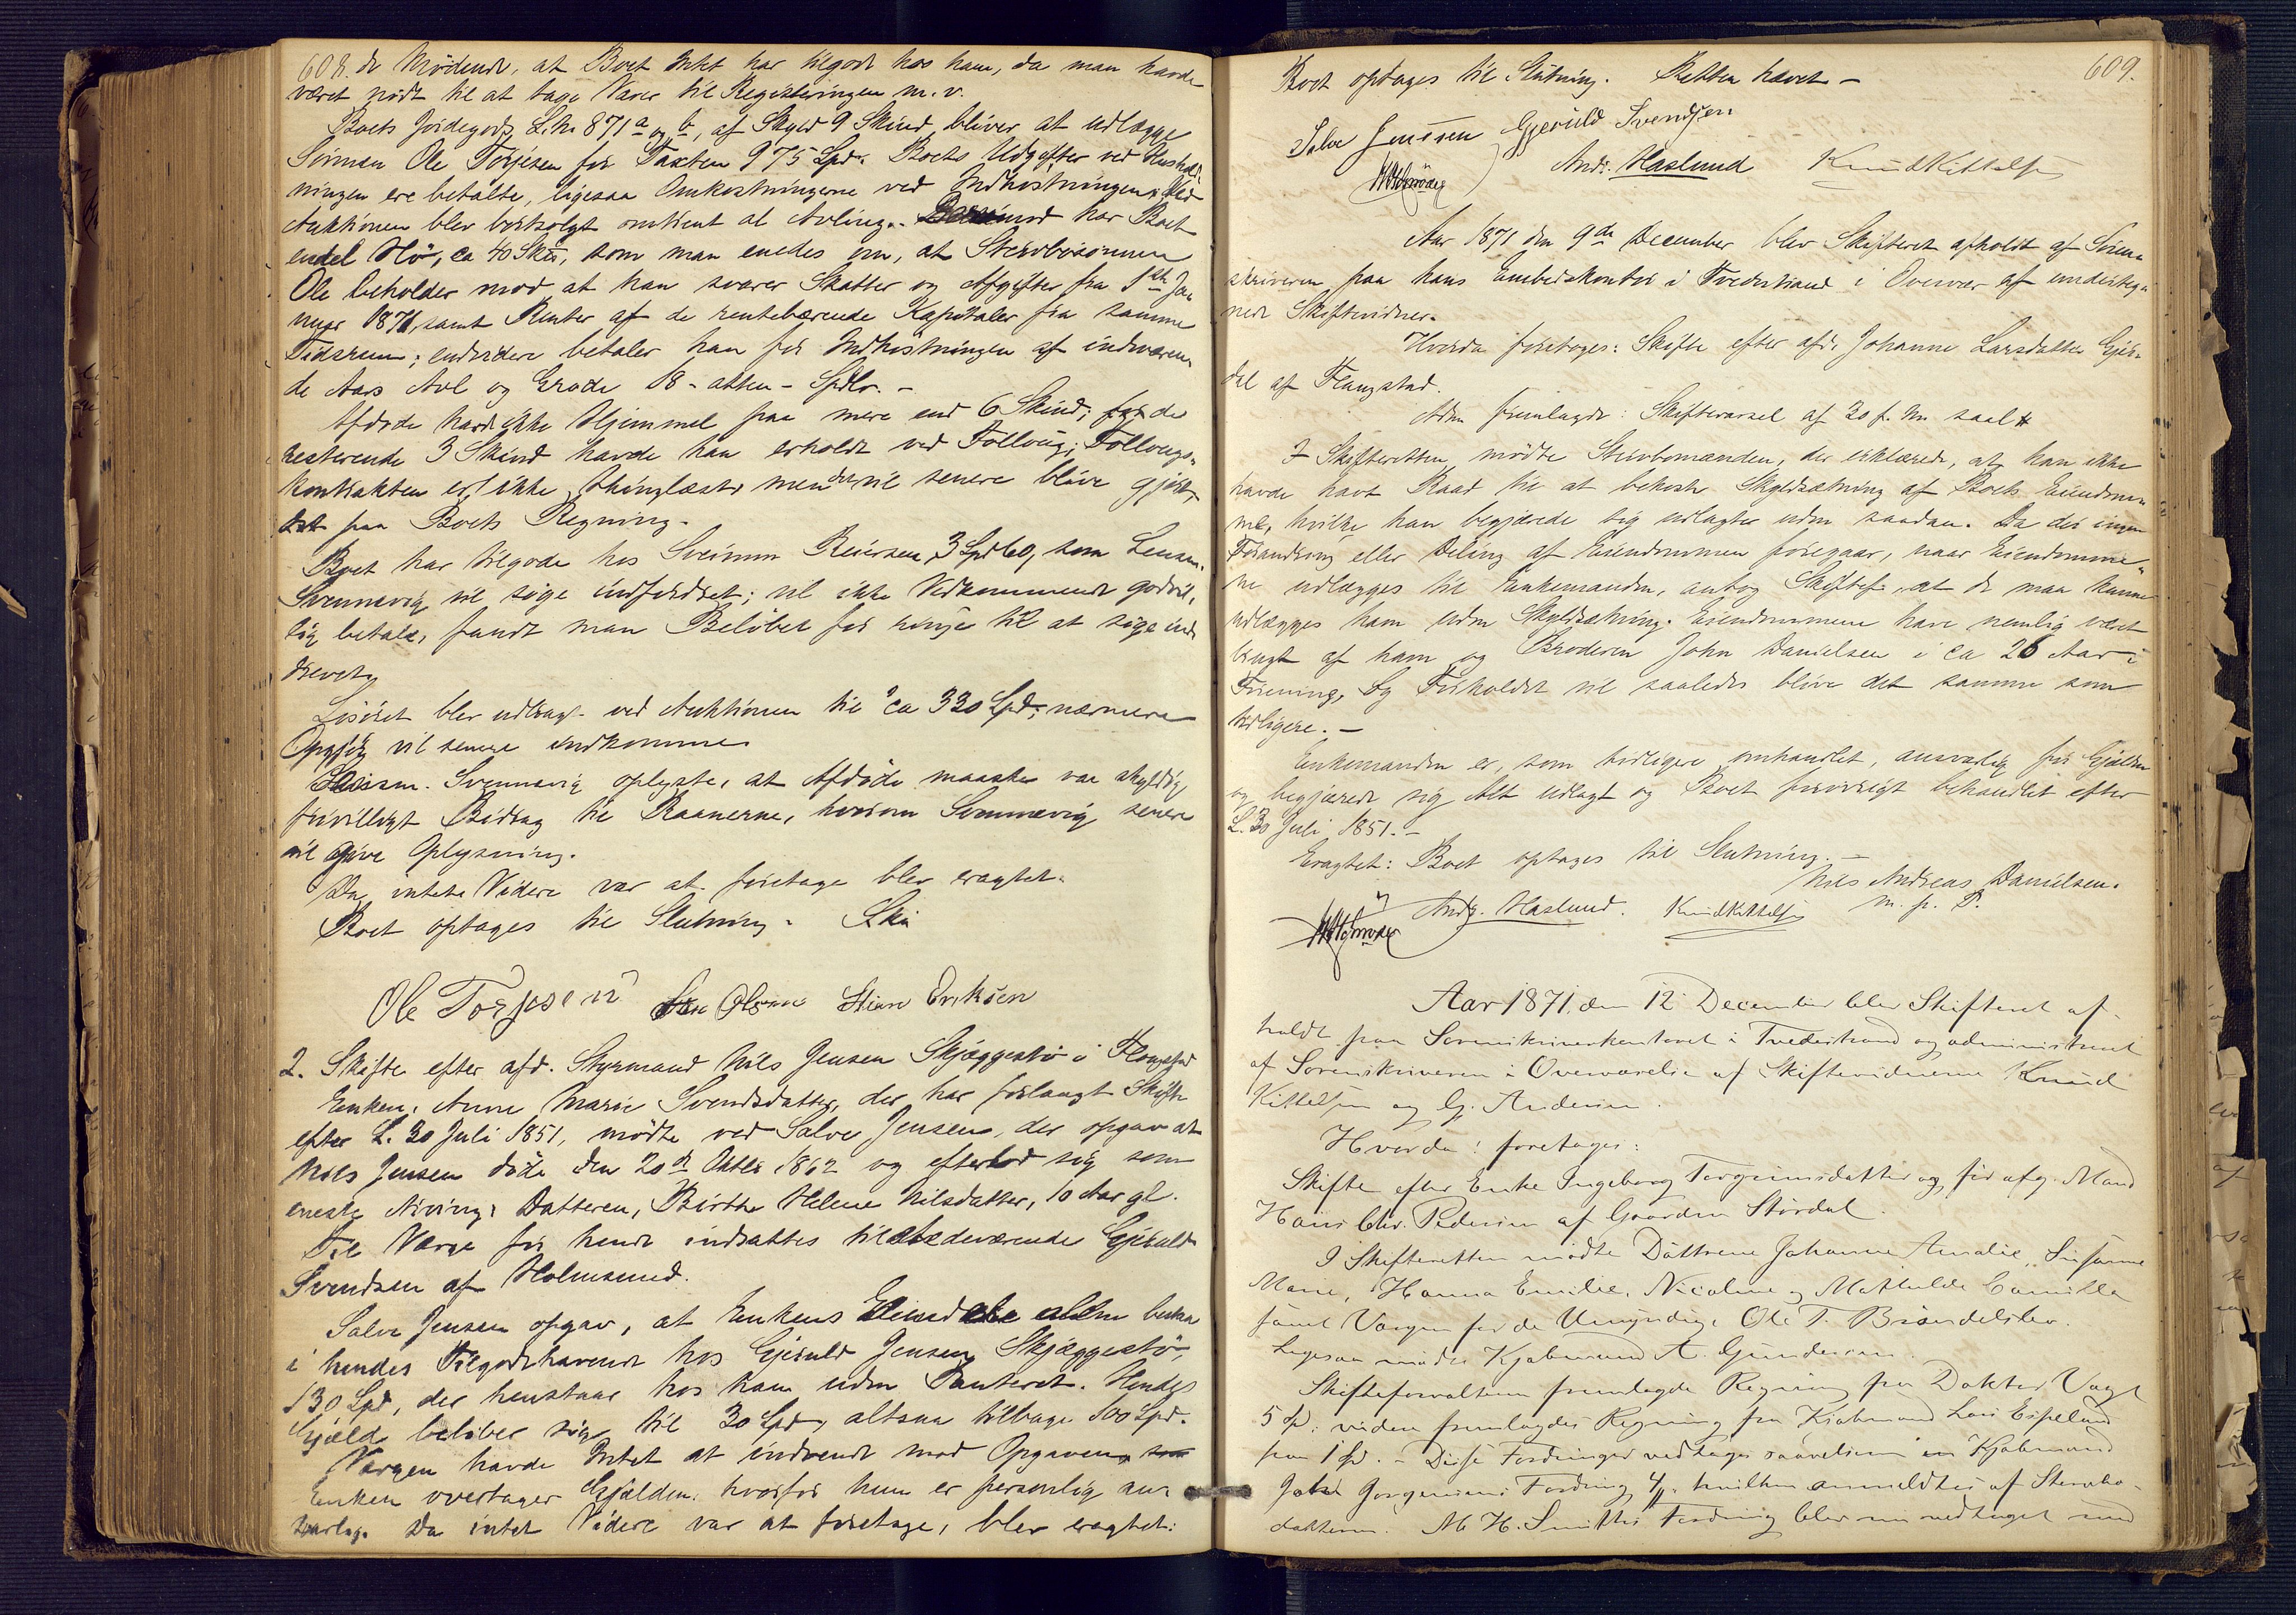 608. de Mødende, at Boet Intet har tilgode hos ham, da man havde
været nødt til at tage Varer til Registreringen m. v.
Boets Jordegods, L. Nr. 871 a og b, af Skyld 9 Skind bliver at udlægge
Sønnen Ole Torjesen for Taxten 975 Spd. Boets Udgifter ved Hushold-
ningen ere betalte, ligesaa Omkostningerne ved Indhøstningen; Ved
Auktionen blev bortsolgt omtrent al Avling. Derimod har Boet
endel Hø, ca 40 Sk℔, som man enedes om, at Stervbosønnen
Ole beholder mod at han svarer Skatter og Afgifter fra 1ste Ja-
nuar 1871, samt Renter af de rentebærende Kapitaler fra samme
Tidsrum; endvidere betaler han for Indhøstningen af indværen-
de Aars Avl og Grøde 18 - atten - Spdlr. -
Afdøde havde ikke Hjemmel paa mere end 6 Skind; for de
resterende 3 Skind havde han erholdt ved Følloug; Føllougs-
kontrakten er ikke thinglæst, men det vil senere blive gjort
paa Boets Regning.
Boet har tilgode hos Sveinun Reiersen 3 Spd 60, som Lensm.
Svennevig vil søge indfordret; vil ikke Vedkommende godvil-
lig betale, fandt man Beløbet for ringe til at søge ind-
drevet.
Løsøret blev udbragt ved Auktionen til ca 330 Spd; nærmere
Opgjør vil senere indkomme.
Lensm. Svennevig oplyste, at Afdøde maaske var skyldig
frivilligt Bidrag til Raanerne, hvorom Svennevig senere
vil give Oplysning.
Da intet Videre var at foretage blev eragtet:
Boet optages til Slutning. Ski
Ole Torjesen Olsen Stian Eriksen
2. Skifte efter afd. Styrmand Nils Jensen Skjæggestø i Flangstad
Enken, Anne Marie Svendsdatter, der har forlangt Skifte
efter L. 30 Juli 1851, mødte ved Salve Jensen, der opgav at
Nils Jensen døde den 20de Oktbr 1862 og efterlod sig som
eneste Arving: Datteren, Birthe Helene Nilsdatter, 10 Aar gl.
Til Værge for hende indsattes tilstedeværende Gjeruld
Svendsen af Holmesund.
Salve Jensen opgav, at Enkens Eiendele alene bestaa
i hendes Tilgodehavende hos Gjeruld Jensen Skjæggestø,
130 Spd, der henstaar hos ham uden Panteret. Hendes
Gjæld beløber sig til 30 Spd, altsaa tilbage 100 Spd.
Værgen havde Intet at indvende mod Opgaven,
Enken overtager Gjælden, hvorfor hun er personlig an-
svarlig. Da intet Videre var at foretage, blev eragtet:
609.
Boet optages til Slutning. Retten hævet -
Salve Jenssen Gjeruld Svendsen
Andr. Haslund Knud Kittelsen
Aar 1871 den 9de December blev Skifteret afholdt af Soren-
skriveren paa hans Embedskontor i Tvedestrand i Overvær af underteg-
nede Skiftevidner.
Hvorda foretoges: Skifte efter afd. Johanne Larsdatter Gjer-
dal af Flangstad.
Adm. fremlagde: Skiftevarsel af 30 f. M. saal.
I Skifteretten mødte Stervbomanden, der erklærede, at han ikke
havde havt Raad til at bekoste Skyldsætning af Boets Eiendom-
me, hvilke han begjærede sig udlagte uden saadan. Da der ingen
Forandring eller Deling af Eiendommen foregaar, naar Eiendomme-
ne udlægges til Enkemanden, antog Skiftef. at de maa kunne
udlægges ham uden Skyldsætning. Eiendommene have nemlig været
brugt af ham og Broderen John Danielsen i ca 26 Aar i
Forening, og Forholdet vil saaledes blive det samme som
tidligere. -
Enkemanden er, som tidligere omhandlet, ansvarlig for Gjælden
og begjærede sig Alt udlagt og Boet forøvrigt behandlet efter
L. 30 Juli 1851. -
Eragtet: Boet optages til Slutning. -
Nils Andreas Danielsen.
Andr. Haslund. Knud Kittelsen m. p. P.
Aar 1871, den 12 December blev Skifteret af-
holdt paa Sorenskriverkontoret i Tvedestrand og administreret
af Sorenskriveren i Overværelse af Skiftevidnerne Knud
Kittelsen og G. Andersen.
Hvorda: foretoges:
Skifte efter Enke Ingeborg Torgrimsdatter og før afg. Mand
Hans Chr. Pedersen af Gaarden Størdal.
I Skifteretten mødte Døttrene Johanne Amalie, Susanne
Marie, Hanna Emilie, Nicoline og Mathilde Camilla
samt Værgen for de Umyndige Ole T. Brændelslev.
Ligesaa mødte Kjøbmand A. Gundersen.
Skifteforvalteren fremlagde Regning fra Doktor Vogt
5 Sp. viden fremlagdes Regning fra Kjøbmand Lars Espeland
paa 1 Sp. - Disse Fordringer vedtages saavelsom en Kjøbmand
Jørgensens Fordring 4 hvilken anmeldtes af Stervbo-
døttrene. M. H. Smiths Fordring blev nu vedtaget med